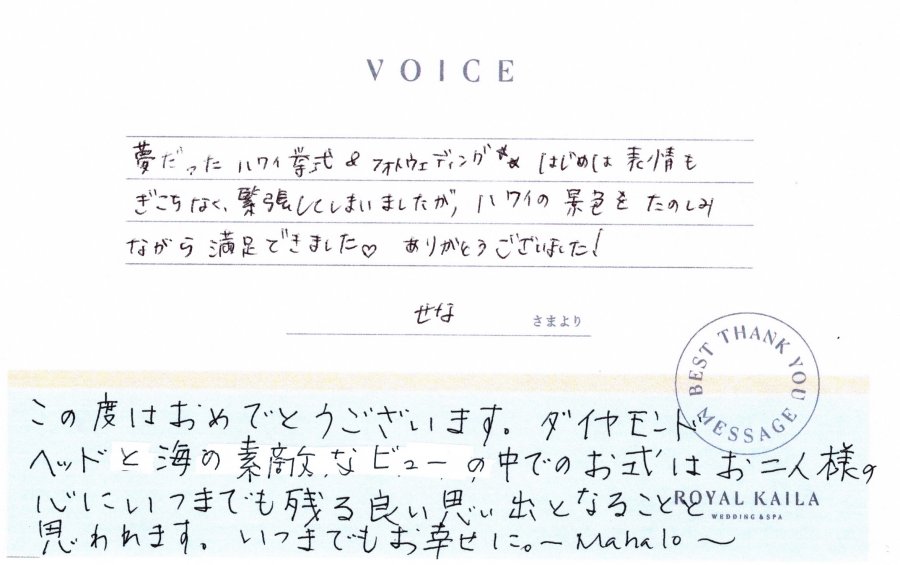 VOICE
夢だったハワイ挙式&フォトウェディング** はじめは表情も
ぎこちなく、緊張してしまいましたが、ハワイの景色をたのしみ
ながら満足できました♡ ありがとうございました!
せな さまより
BEST THANK YOU MESSAGE
この度はおめでとうございます。ダイヤモンド
ヘッドと海の素敵なビューの中でのお式はお二人様の
心にいつまでも残る良い思い出となることと
ROYAL KAILA
WEDDING & SPA
思われます。いつまでもお幸せに。〜Mahalo〜